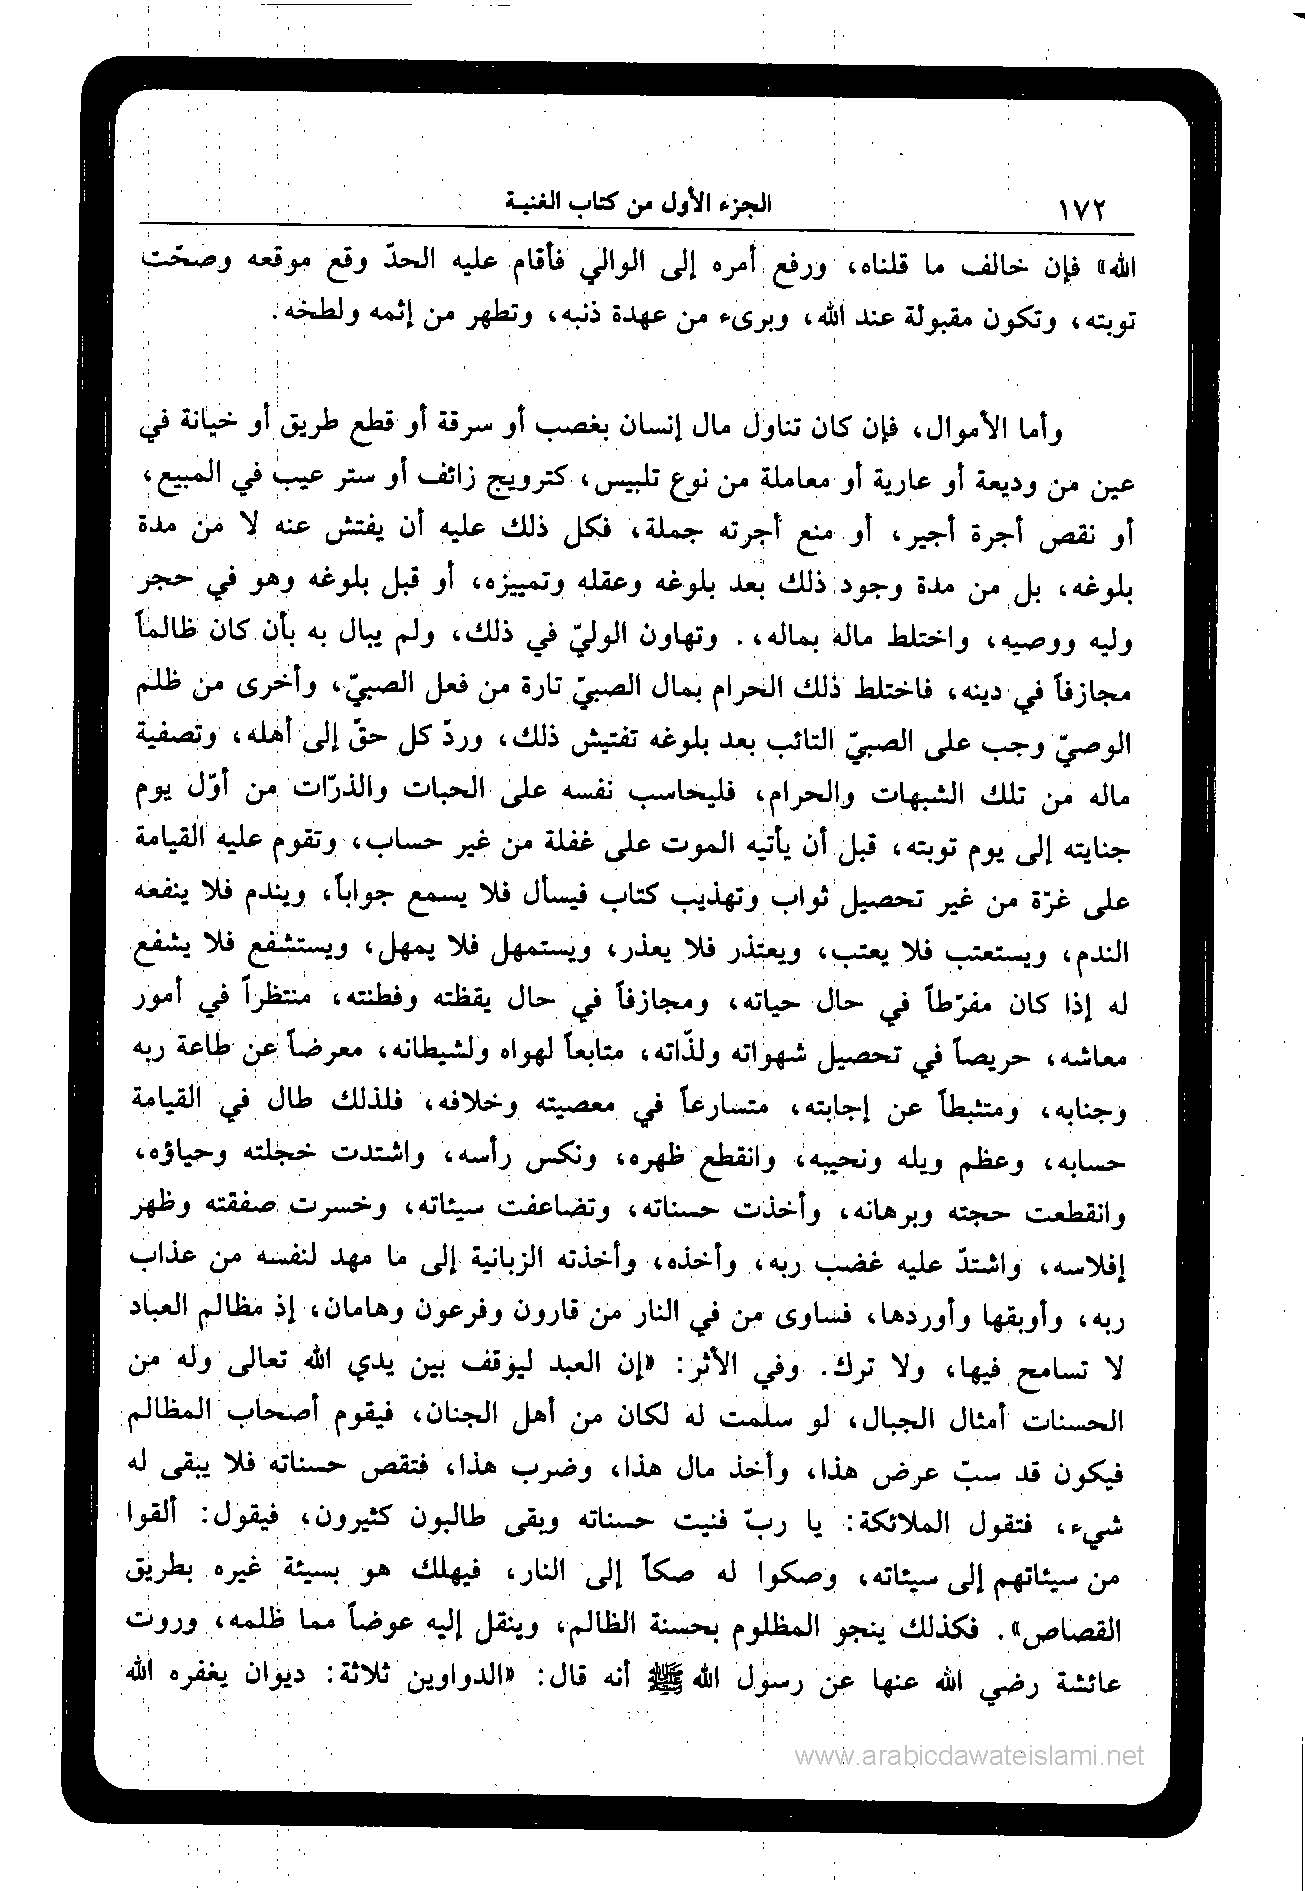 ١٧٢ الجزء الأول من كتاب الغنية
الله» فإن خالف ما قلناه، ورفع أمره إلى الوالي فأقام عليه الحدّ وقع موقعه وصحّت
توبته، وتكون مقبولة عند الله، وبرىء من عهدة ذنبه، وتطهر من إثمه ولطخه.
وأما الأموال، فإن كان تناول مال إنسان بغصب أو سرقة أو قطع طريق أو خيانة في
عين من وديعة أو عارية أو معاملة من نوع تلبيس، كترويج زائف أو ستر عيب في المبيع،
أو نقص أجرة أجير، أو منع أجرته جملة، فكل ذلك عليه أن يفتش عنه لا من مدة
بلوغه، بل من مدة وجود ذلك بعد بلوغه وعقله وتمييزه، أو قبل بلوغه وهو في حجر
وليه ووصيه، واختلط ماله بماله،. وتهاون الوليّ في ذلك، ولم يبال به بأن كان ظالماً
مجازفاً في دينه، فاختلط ذلك الحرام بمال الصبيّ تارة من فعل الصبيّ، وأخرى من ظلم
الوصيّ وجب على الصبيّ التائب بعد بلوغه تفتيش ذلك، وردّ كل حقّ إلى أهله، وتصفية
ماله من تلك الشبهات والحرام، فليحاسب نفسه على الحبات والذرّات من أوّل يوم
جنايته إلى يوم توبته، قبل أن يأتيه الموت على غفلة من غير حساب، وتقوم عليه القيامة
على غرّة من غير تحصيل ثواب وتهذيب كتاب فيسأل فلا يسمع جواباً، ويندم فلا ينفعه
الندم، ويستعتب فلا يعتب، ويعتذر فلا يعذر، ويستمهل فلا يمهل، ويستشفع فلا يشفع
له إذا كان مفرّطاً في حال حياته، ومجازفاً في حال يقظته وفطنته، منتظراً في أمور
معاشه، حريصاً في تحصيل شهواته ولذّاته، متابعاً لهواه ولشيطانه، معرضاً عن طاعة ربه
وجنابه، ومتثبطاً عن إجابته، متسارعاً في معصيته وخلافه، فلذلك طال في القيامة
حسابه، وعظم ويله ونحيبه، وانقطع ظهره، ونكس رأسه، واشتدت خجلته وحياؤه،
وانقطعت حجته وبرهانه، وأخذت حسناته، وتضاعفت سيئاته، وخسرت صفقته وظهر
إفلاسه، واشتدّ عليه غضب ربه، وأخذه، وأخذته الزبانية إلى ما مهد لنفسه من عذاب
ربه، وأوبقها وأوردها، فساوى من في النار من قارون وفرعون وهامان، إذ مظالم العباد
لا تسامح فيها، ولا ترك. وفي الأثر: «إن العبد ليوقف بين يدي الله تعالى وله من
الحسنات أمثال الجبال، لو سلمت له لكان من أهل الجنان، فيقوم أصحاب المظالم
فيكون قد سبّ عرض هذا، وأخذ مال هذا، وضرب هذا، فتقص حسناته فلا يبقى له
شيء، فتقول الملائكة: يا ربّ فنيت حسناته وبقى طالبون كثيرون، فيقول: ألقوا
من سيئاتهم إلى سيئاته، وصكوا له صكاً إلى النار، فيهلك هو بسيئة غيره بطريق
القصاص». فكذلك ينجو المظلوم بحسنة الظالم، وينقل إليه عوضاً مما ظلمه، وروت
عائشة رضي الله عنها عن رسول الله ﷺ أنه قال: «الدواوين ثلاثة: ديوان يغفره الله
www.arabicdawateislami.net